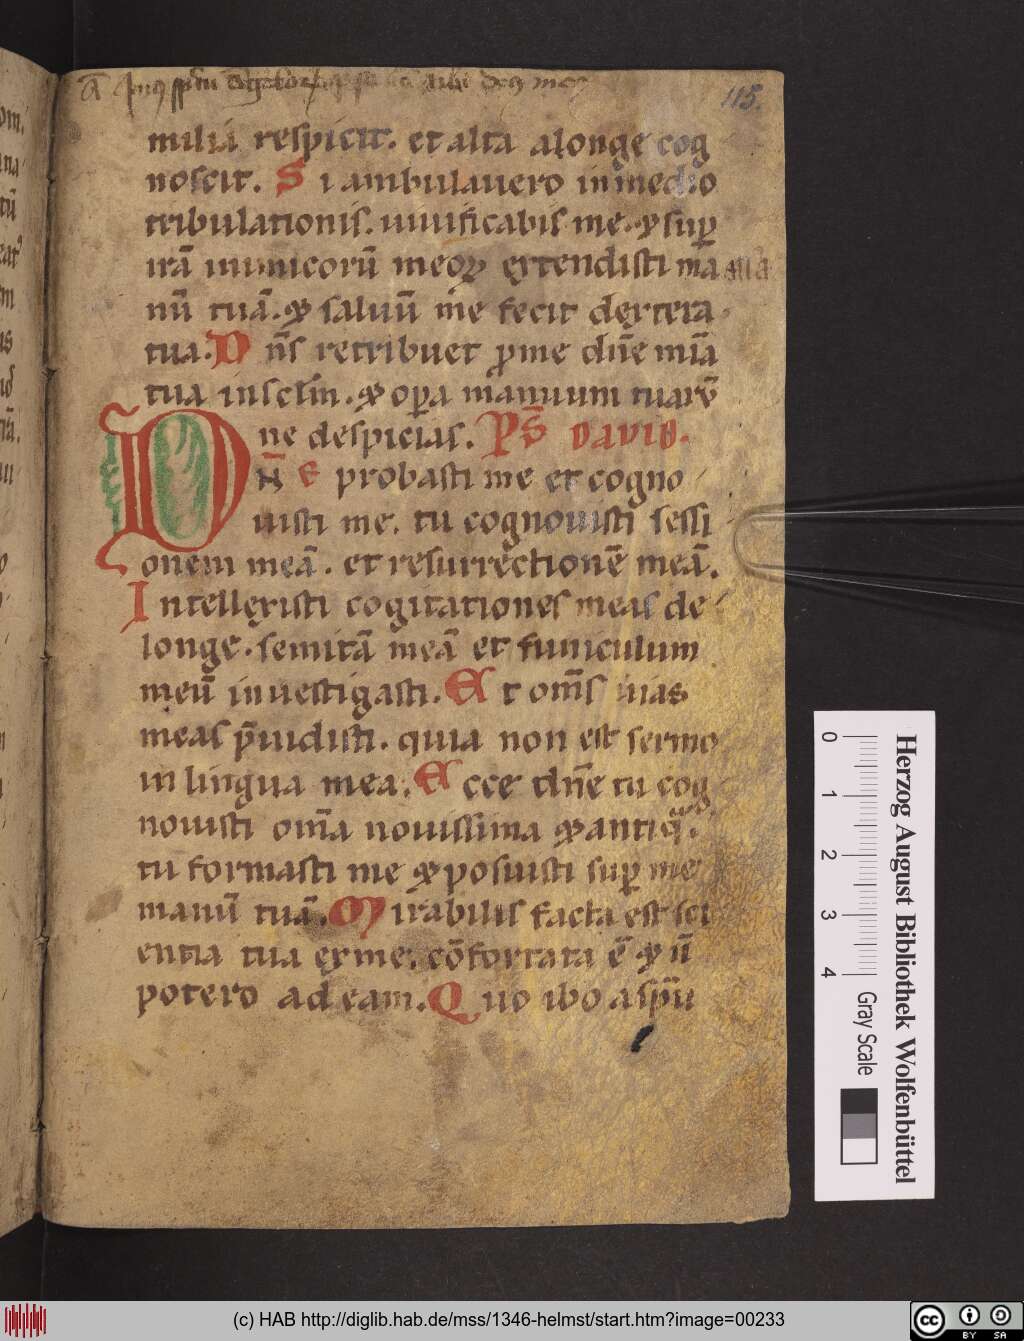 115.
milia respicit. et alta alonge cog
noscit. Si ambulauero in medio
tribulationis. uiuificabis me. ⁊ sup̄
irā inimicorū meoꝝ extendisti ma
nū tuā. ⁊ saluū me fecit dextera
tua. Dn̄s retribuet ꝓme dn̄e mīa
tua inscl̄m. ⁊ oꝑa manuum tuarū
ne despicias. Ps̄ DAVID.
Dn̄e probasti me et cogno
uisti me. tu cognouisti sessi
onem meā. et resurrectionē meā.
Intellexisti cogitationes meas de
longe. semitā meā et funiculum
meū inuestigasti. Et om̄s uias
meas p̄uidisti. quia non est sermo
in lingua mea. Ecce dn̄e tu cog
nouisti om̄a nouissima ⁊ antiq̄.
tu formasti me ⁊ posuisti sup̄ me
manū tuā. Mirabilis facta est sci
entia tua exme. cōfortata ē ⁊ n̄
potero ad eam. Quo ibo aspū
0 1 2 3 4
Gray Scale
Herzog August Bibliothek Wolfenbüttel
(c) HAB http://diglib.hab.de/mss/1346-helmst/start.htm?image=00233
cc BY SA